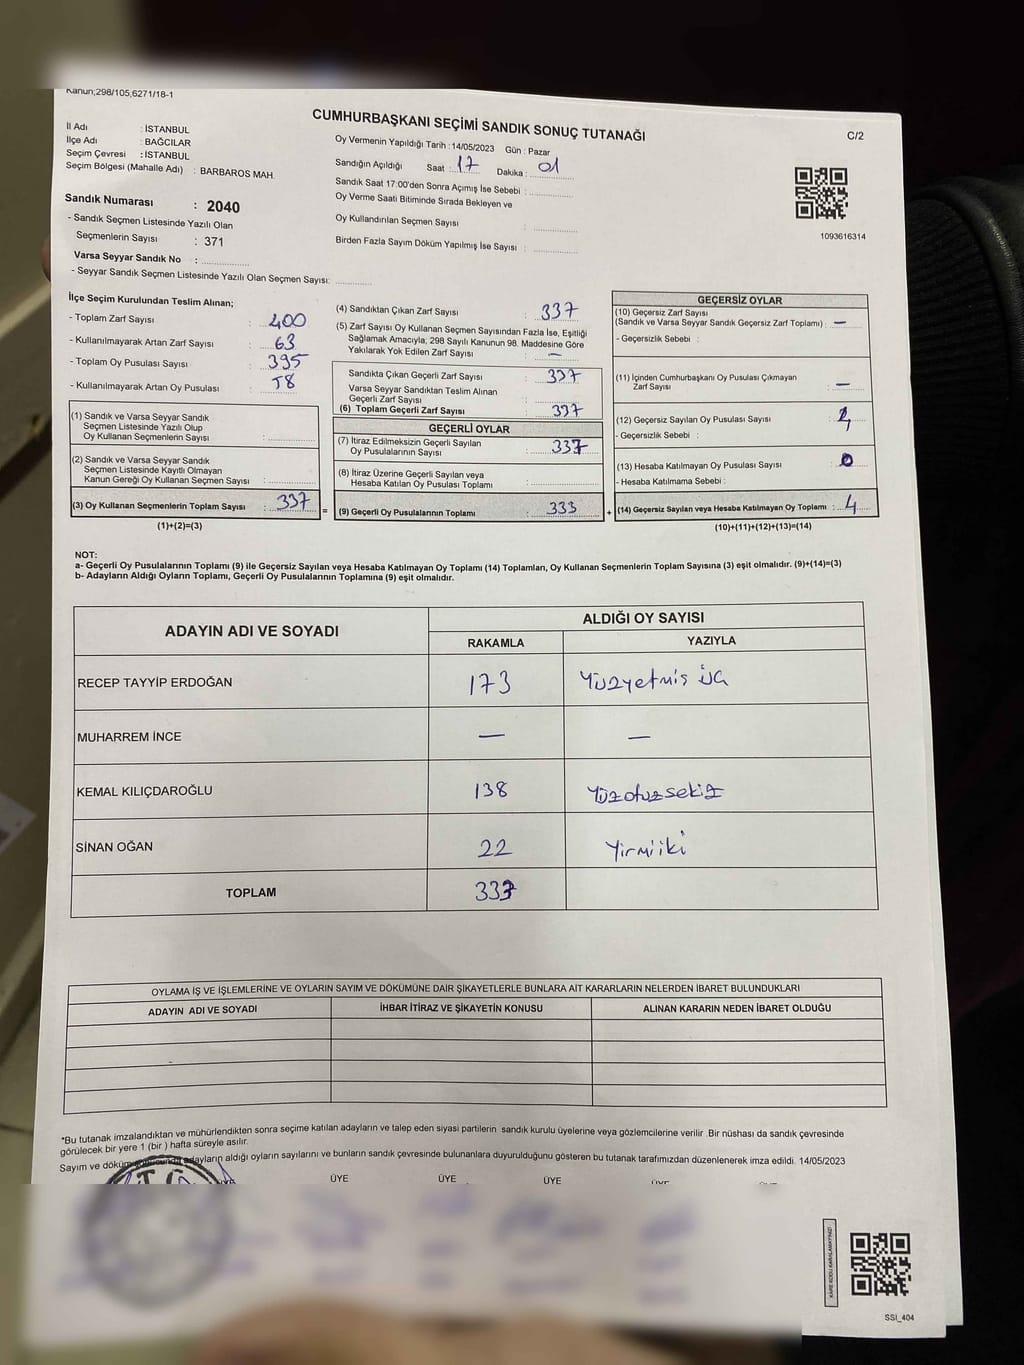 Kanun;298/105,6271/18-1
CUMHURBAŞKANI SEÇİMİ SANDIK SONUÇ TUTANAĞI
C/2
İl Adı : İSTANBUL
İlçe Adı : BAĞCILAR
Seçim Çevresi : İSTANBUL
Seçim Bölgesi (Mahalle Adı) : BARBAROS MAH.
Sandık Numarası : 2040
- Sandık Seçmen Listesinde Yazılı Olan
Seçmenlerin Sayısı : 371
Varsa Seyyar Sandık No :
- Seyyar Sandık Seçmen Listesinde Yazılı Olan Seçmen Sayısı:
Oy Vermenin Yapıldığı Tarih : 14/05/2023 Gün : Pazar
Sandığın Açıldığı Saat : 17 Dakika : 01
Sandık Saat 17:00'den Sonra Açımış İse Sebebi :
Oy Verme Saati Bitiminde Sırada Bekleyen ve
Oy Kullandırılan Seçmen Sayısı :
Birden Fazla Sayım Döküm Yapılmış İse Sayısı :
1093616314
İlçe Seçim Kurulundan Teslim Alınan;
- Toplam Zarf Sayısı : 400
- Kullanılmayarak Artan Zarf Sayısı : 63
- Toplam Oy Pusulası Sayısı : 395
- Kullanılmayarak Artan Oy Pusulası : 58
(1) Sandık ve Varsa Seyyar Sandık
Seçmen Listesinde Yazılı Olup
Oy Kullanan Seçmenlerin Sayısı :
(2) Sandık ve Varsa Seyyar Sandık
Seçmen Listesinde Kayıtlı Olmayan
Kanun Gereği Oy Kullanan Seçmen Sayısı :
(3) Oy Kullanan Seçmenlerin Toplam Sayısı : 337
(1)+(2)=(3)
=
(4) Sandıktan Çıkan Zarf Sayısı : 337
(5) Zarf Sayısı Oy Kullanan Seçmen Sayısından Fazla İse, Eşitliği
Sağlamak Amacıyla; 298 Sayılı Kanunun 98. Maddesine Göre
Yakılarak Yok Edilen Zarf Sayısı : —
Sandıkta Çıkan Geçerli Zarf Sayısı : 337
Varsa Seyyar Sandıktan Teslim Alınan
Geçerli Zarf Sayısı :
(6) Toplam Geçerli Zarf Sayısı : 337
GEÇERLİ OYLAR
(7) İtiraz Edilmeksizin Geçerli Sayılan
Oy Pusulalarının Sayısı : 337
(8) İtiraz Üzerine Geçerli Sayılan veya
Hesaba Katılan Oy Pusulası Toplamı :
(9) Geçerli Oy Pusulalarının Toplamı : 333
+
GEÇERSİZ OYLAR
(10) Geçersiz Zarf Sayısı
(Sandık ve Varsa Seyyar Sandık Geçersiz Zarf Toplamı) : —
- Geçersizlik Sebebi :
(11) İçinden Cumhurbaşkanı Oy Pusulası Çıkmayan
Zarf Sayısı : —
(12) Geçersiz Sayılan Oy Pusulası Sayısı :
- Geçersizlik Sebebi :
(13) Hesaba Katılmayan Oy Pusulası Sayısı : 0
- Hesaba Katılmama Sebebi :
(14) Geçersiz Sayılan veya Hesaba Katılmayan Oy Toplamı : 4
(10)+(11)+(12)+(13)=(14)
NOT:
a- Geçerli Oy Pusulalarının Toplamı (9) ile Geçersiz Sayılan veya Hesaba Katılmayan Oy Toplamı (14) Toplamları, Oy Kullanan Seçmenlerin Toplam Sayısına (3) eşit olmalıdır. (9)+(14)=(3)
b- Adayların Aldığı Oyların Toplamı, Geçerli Oy Pusulalarının Toplamına (9) eşit olmalıdır.
ADAYIN ADI VE SOYADI
ALDIĞI OY SAYISI
RAKAMLA YAZIYLA
RECEP TAYYİP ERDOĞAN 173 Yüzyetmiş üç
MUHARREM İNCE — —
KEMAL KILIÇDAROĞLU 138 Yüzotuzsekiz
SİNAN OĞAN 22 Yirmiiki
TOPLAM 337
OYLAMA İŞ VE İŞLEMLERİNE VE OYLARIN SAYIM VE DÖKÜMÜNE DAİR ŞİKAYETLERLE BUNLARA AİT KARARLARIN NELERDEN İBARET BULUNDUKLARI
ADAYIN ADI VE SOYADI İHBAR İTİRAZ VE ŞİKAYETİN KONUSU ALINAN KARARIN NEDEN İBARET OLDUĞU
*Bu tutanak imzalandıktan ve mühürlendikten sonra seçime katılan adayların ve talep eden siyasi partilerin sandık kurulu üyelerine veya gözlemcilerine verilir .Bir nüshası da sandık çevresinde
görülecek bir yere 1 (bir ) hafta süreyle asılır.
Sayım ve döküm adayların aldığı oyların sayılarını ve bunların sandık çevresinde bulunanlara duyurulduğunu gösteren bu tutanak tarafımızdan düzenlenerek imza edildi. 14/05/2023
ÜYE ÜYE ÜYE
SSI_404